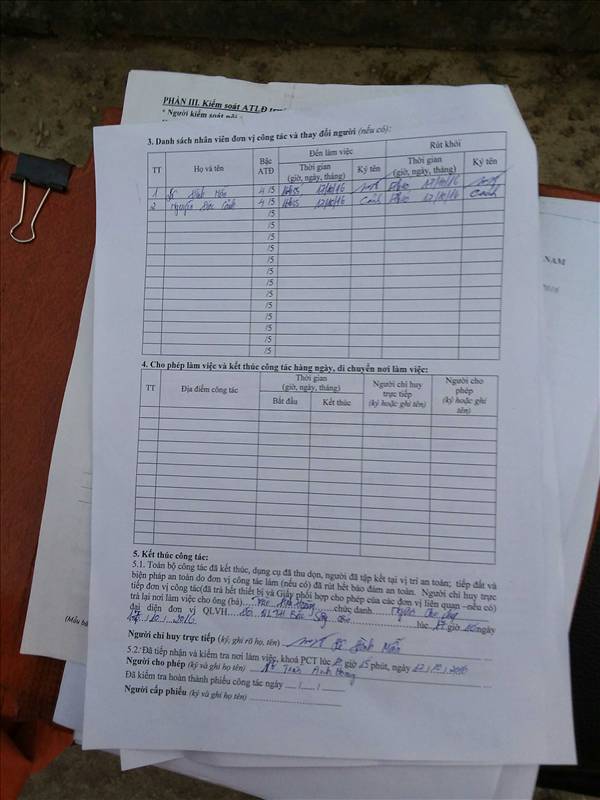 PHẦN III. Kiểm soát ATLĐ
* Người kiểm soát
3. Danh sách nhân viên đơn vị công tác và thay đổi người (nếu có):
TT Họ và tên Bậc ATĐ Đến làm việc Rút khỏi
Thời gian (giờ, ngày, tháng) Ký tên Thời gian (giờ, ngày, tháng) Ký tên
1 Đình Mẫn 4 /5 17/10/16 17/10/16
2 Nguyễn Đức Cảnh 4 /5 17/10/16 Cảnh 17/10/16 Cảnh
/5
/5
/5
/5
/5
/5
/5
/5
/5
/5
/5
/5
NAM
4. Cho phép làm việc và kết thúc công tác hàng ngày, di chuyển nơi làm việc:
TT Địa điểm công tác Thời gian (giờ, ngày, tháng) Người chỉ huy trực tiếp (ký hoặc ghi tên) Người cho phép (ký hoặc ghi tên)
Bắt đầu Kết thúc
5. Kết thúc công tác:
5.1. Toàn bộ công tác đã kết thúc, dụng cụ đã thu dọn, người đã tập kết tại vị trí an toàn; tiếp đất và
biện pháp an toàn do đơn vị công tác làm (nếu có) đã rút hết bảo đảm an toàn. Người chỉ huy trực
tiếp đơn vị công tác(đã trả hết thiết bị và Giấy phối hợp cho phép của các đơn vị liên quan –nếu có)
trả lại nơi làm việc cho ông (bà) chức danh
đại diện đơn vị QLVH lúc giờ ngày
10, 2016
Người chỉ huy trực tiếp (ký, ghi rõ họ, tên) Đình Mẫn
5.2. Đã tiếp nhận và kiểm tra nơi làm việc, khoá PCT lúc giờ phút, ngày
Người cho phép (ký và ghi họ tên) Trần Anh
Đã kiểm tra hoàn thành phiếu công tác ngày / /
Người cấp phiếu (ký và ghi họ tên)
(Mẫu